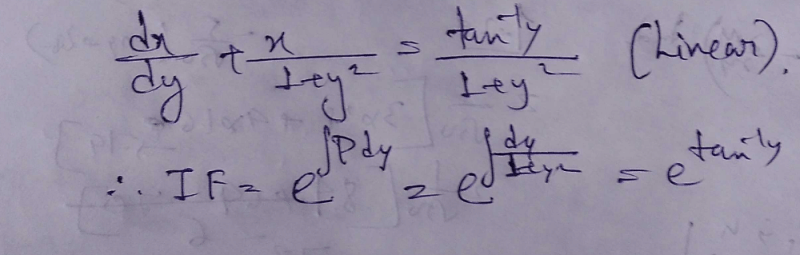 dx/dy + x/(1+y²) = tan⁻¹y/(1+y²) (Linear).
∴ IF = e^{∫Pdy} = e^{∫dy/(1+y²)} = e^{tan⁻¹y}